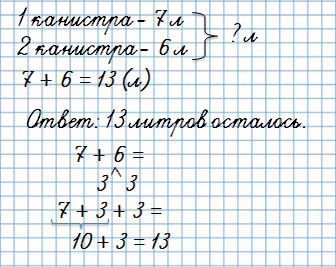 1 канистра - 7л
2 канистра - 6л
? л
7 + 6 = 13 (л)
Ответ: 13 литров осталось.
7 + 6 =
3 3
7 + 3 + 3 =
10 + 3 = 13